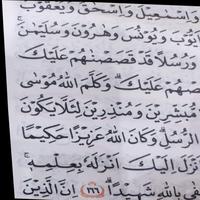 وَاِسْمٰعِيْلَ وَاِسْحٰقَ وَيَعْقُوْبَ
اَيُّوْبَ وَيُوْنُسَ وَهٰرُوْنَ وَسُلَيْمٰنَ ۚ
وَرُسُلًا قَدْ قَصَصْنٰهُمْ عَلَيْكَ
صْهُمْ عَلَيْكَ ۗ وَكَلَّمَ اللّٰهُ مُوْسٰى
مُبَشِّرِيْنَ وَمُنْذِرِيْنَ لِئَلَّا يَكُوْنَ
الرُّسُلِ ۗ وَكَانَ اللّٰهُ عَزِيْزًا حَكِيْمًا
نْزَلَ اِلَيْكَ اَنْزَلَهٗ بِعِلْمِهٖ ۚ
فٰى بِاللّٰهِ شَهِيْدًا ۗ ١٦٦ اِنَّ الَّذِيْنَ